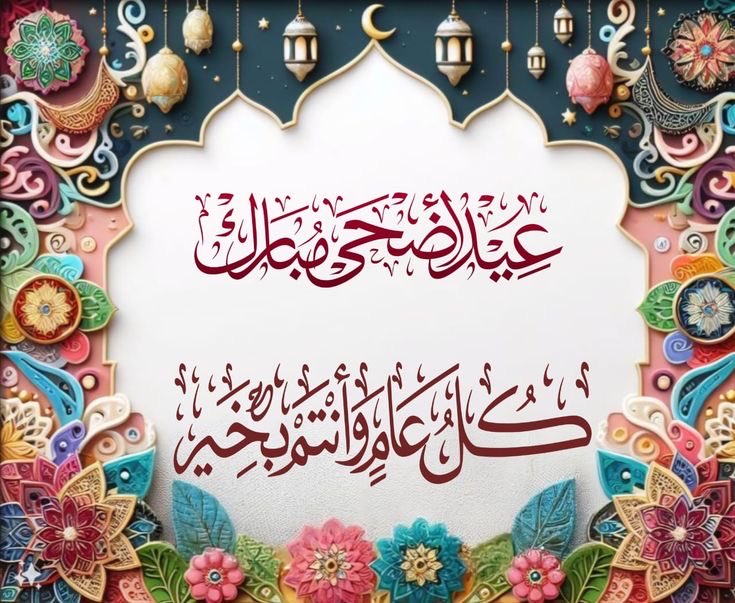 عِيْدُ أَضْحَى مُبَارَكْ
كُلُ عَامٍ وَأَنْتُمْ بِخَيْرٍ